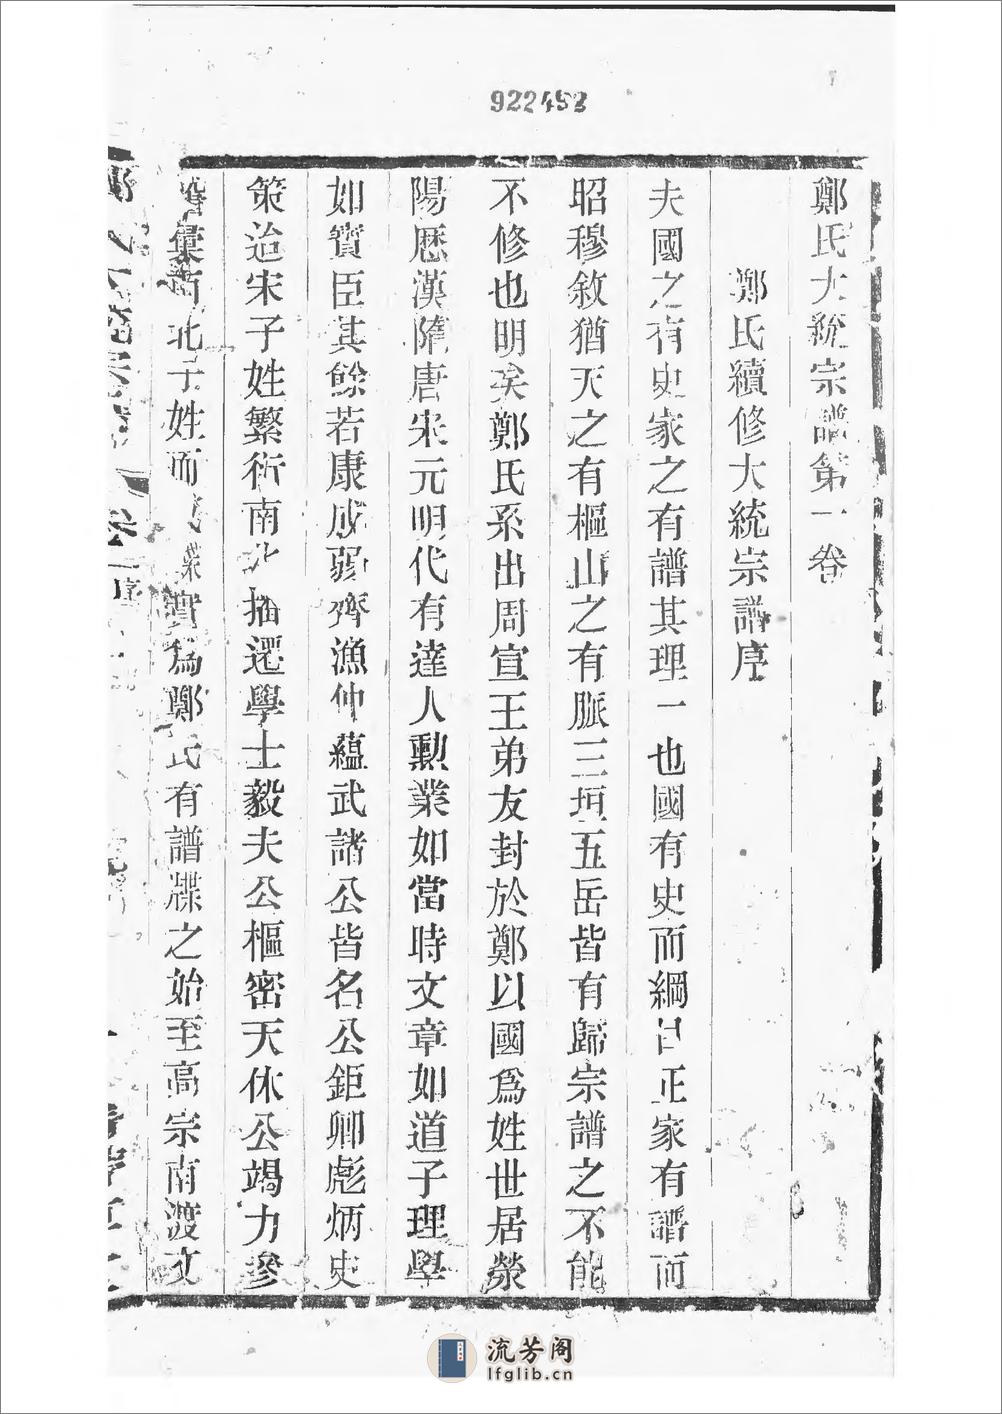 922452
鄭氏大統宗譜第一卷
鄭氏續修大統宗譜序
夫國之有史家之有譜其理一也國有史而綱目正家有譜而
昭穆敘猶天之有樞山之有脈三垣五岳皆有歸宗譜之不能
不修也明矣鄭氏系出周宣王弟友封於鄭以國爲姓世居滎
陽歴漢隋唐宋元明代有達人勳業如當時文章如道子理學
如質臣其餘若康成弱齊漁仲蘊武諸公皆名公鉅卿彪炳史
策迨宋子姓繁衍南北播遷學士毅夫公樞密天休公竭力參
稽彙南北子姓而 實爲鄭氏有譜牒之始至高宗南渡文
卷一 序
流芳阁
lfglib.cn